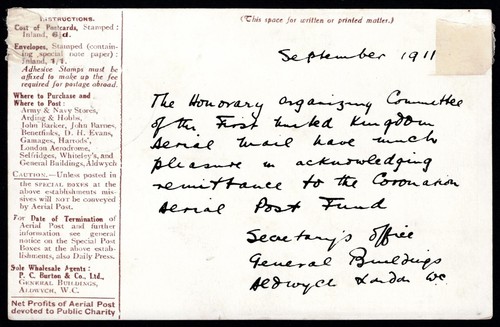 INSTRUCTIONS.
Cost of Postcards, Stamped:
Inland, 6½d.
Envelopes, Stamped (contain-
ing special note paper):
Inland, 1/1.
Adhesive Stamps must be
affixed to make up the fee
required for postage abroad.
Where to Purchase and
Where to Post:
Army & Navy Stores,
Arding & Hobbs,
John Barker, John Barnes,
Benetfinks, D. H. Evans,
Gamages, Harrods',
London Aerodrome,
Selfridges, Whiteley's, and
General Buildings, Aldwych
CAUTION.—Unless posted in
the SPECIAL BOXES at the
above establishments mis-
sives will NOT be conveyed
by Aerial Post.
For Date of Termination of
Aerial Post and further
information see general
notice on the Special Post
Boxes at the above estab-
lishments, also Daily Press.
Sole Wholesale Agents:
P. C. Burton & Co., Ltd.,
GENERAL BUILDINGS,
ALDWYCH, W.C.
Net Profits of Aerial Post
devoted to Public Charity
(This space for written or printed matter.)
September 1911
The Honorary organizing Committee
of the First United Kingdom
Aerial Mail have much
pleasure in acknowledging
remittance to the Coronation
Aerial Post Fund
Secretary's Office
General Buildings
Aldwych London WC